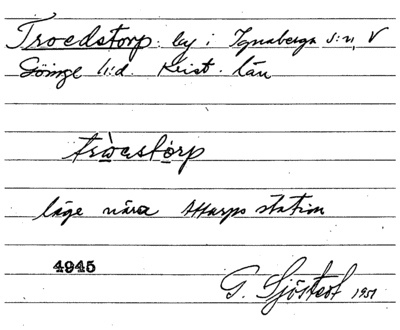 Troedstorp. by i Ignaberga s:n, V
Göinge h:d. Krist. län
läge nära Attarps station
4945
G. Sjöstedt 1951